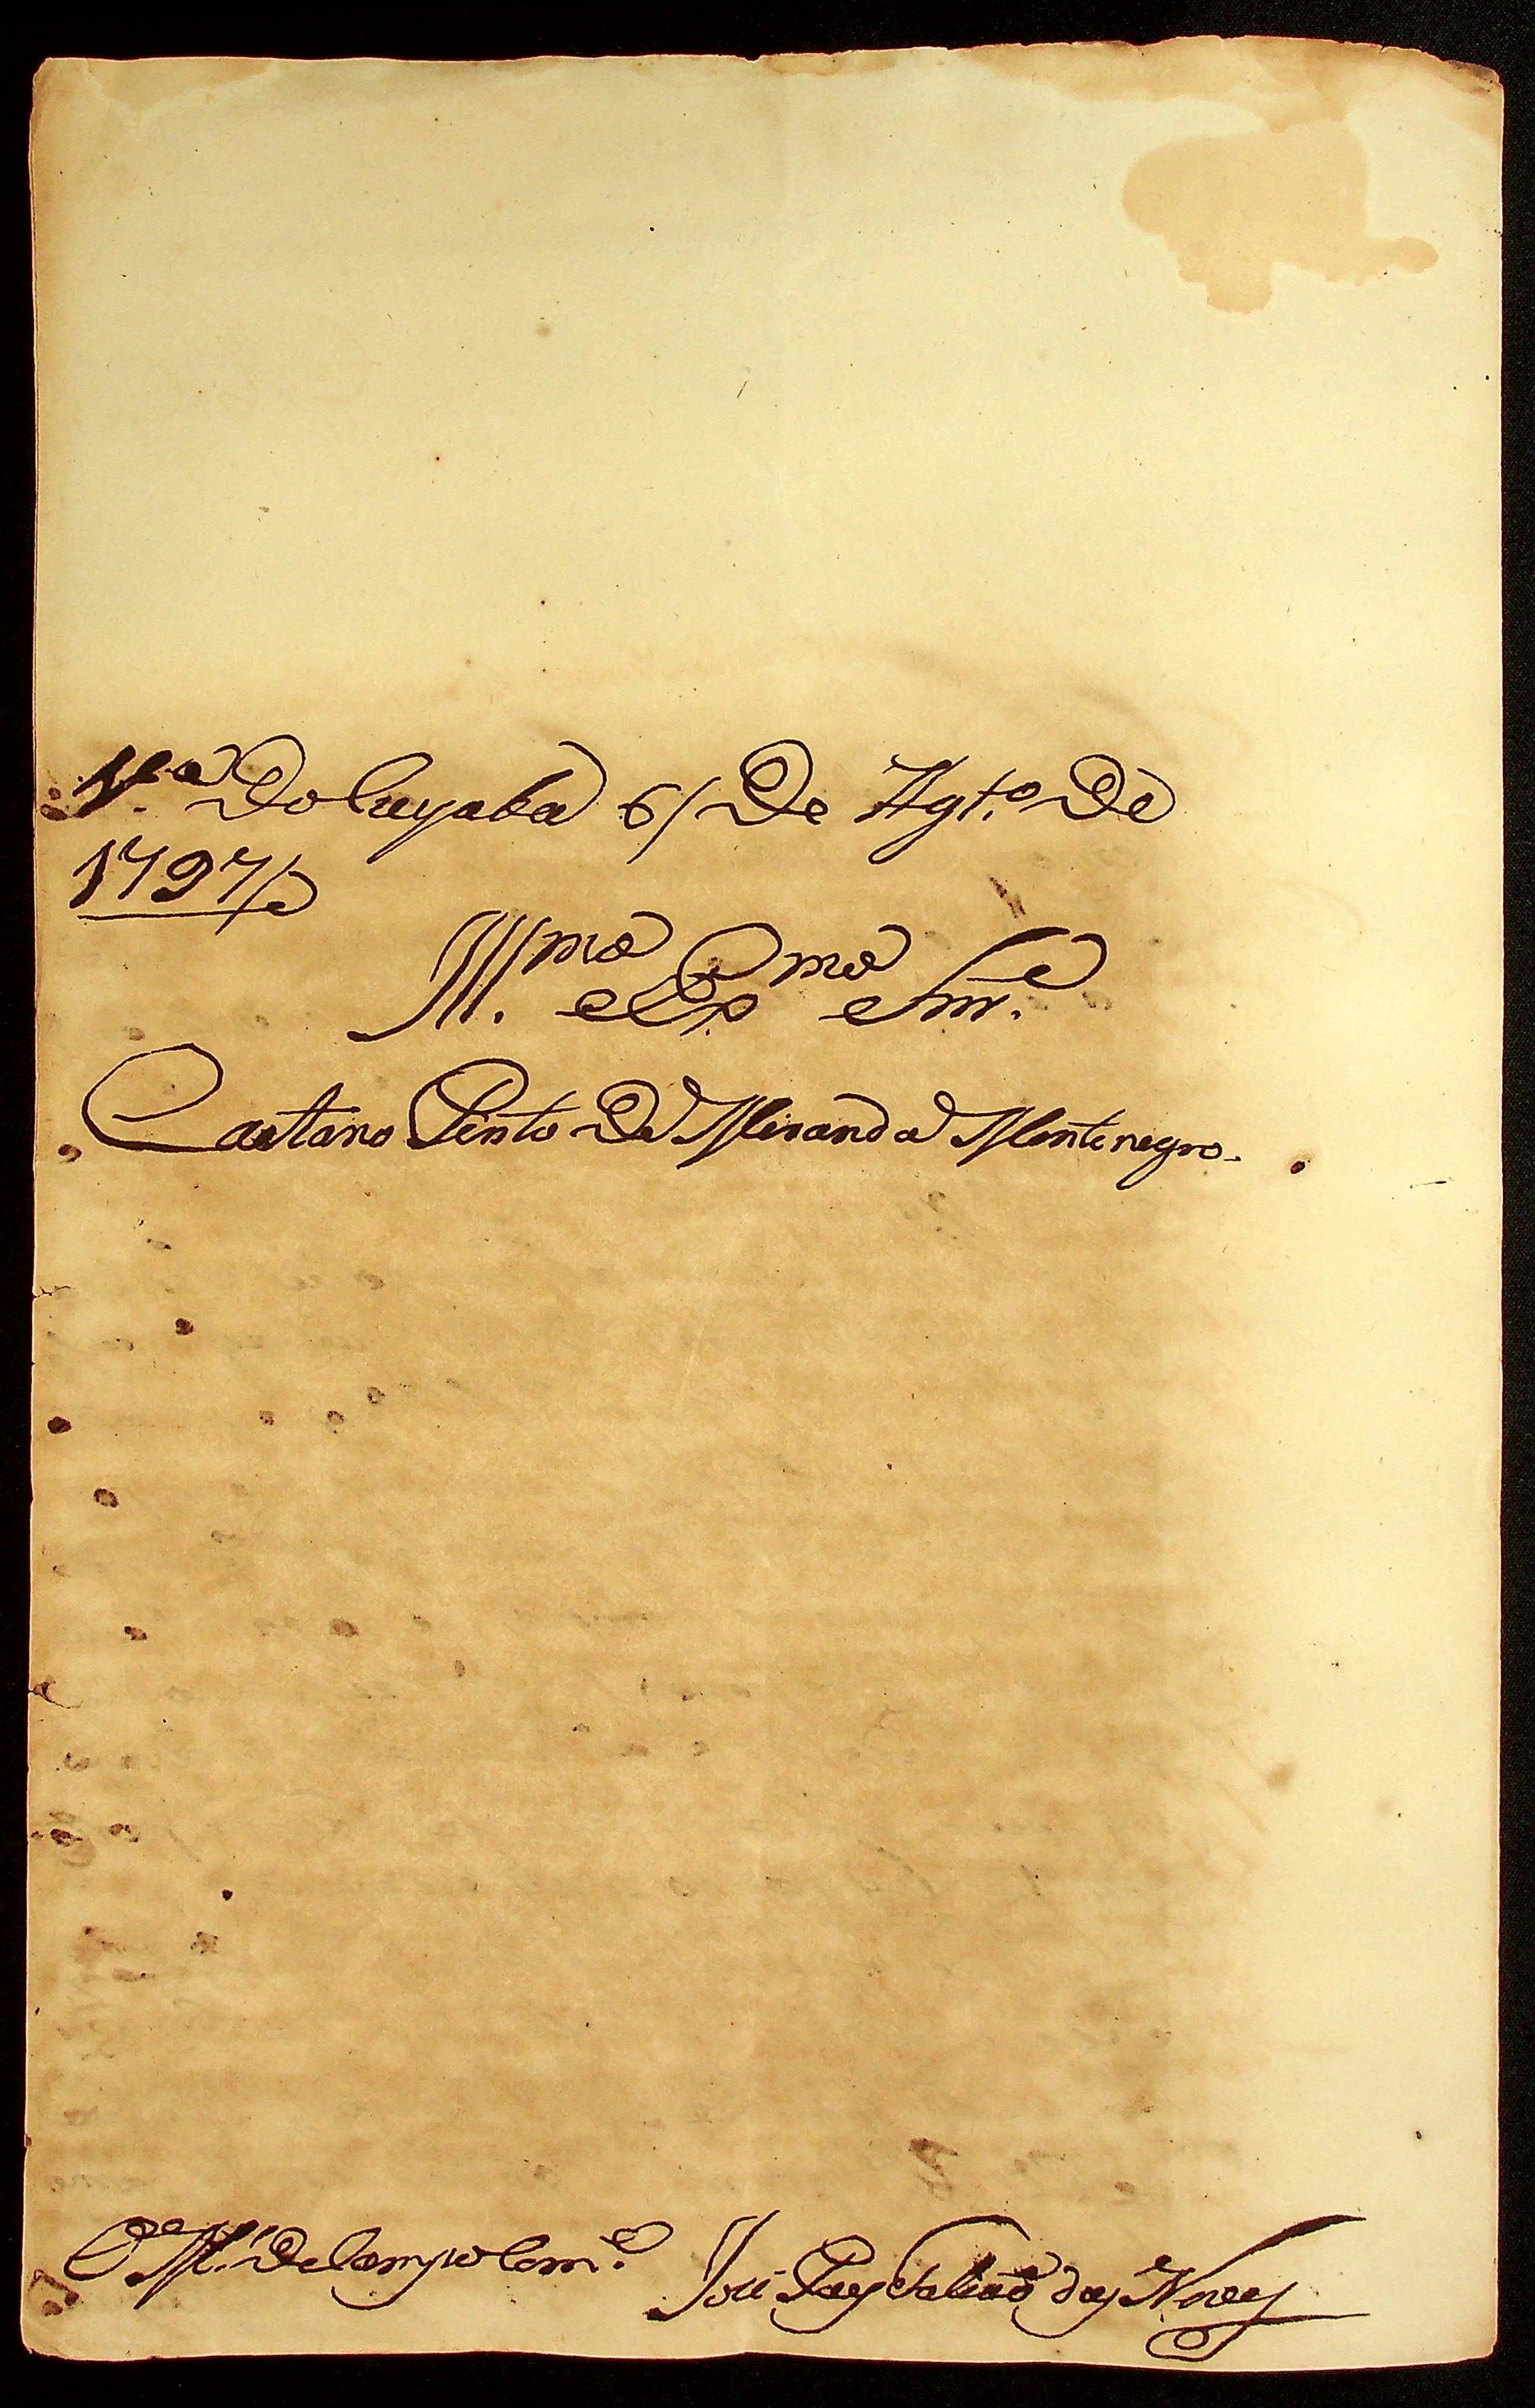 V.ª Do Cuyaba 6/ De Agt.º De
1797/
Ill.mo e Ex.mo Snr.
Caetano Pinto De Miranda Montenegro.
O M.e De Campo Com.e José Paes Falcaõ das Neves